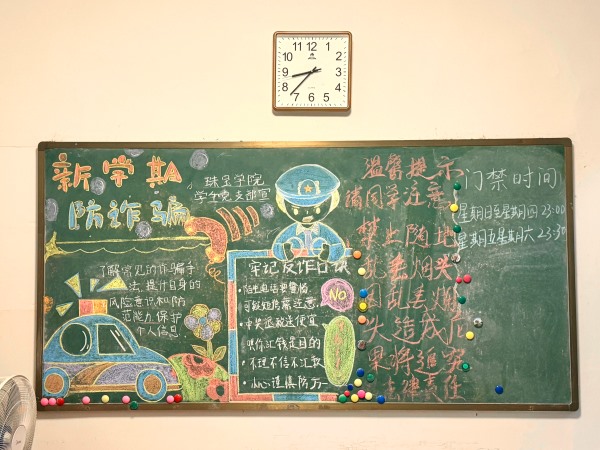 12
11
1
10
2
9
3
8
4
7
6
5
新学期
防诈骗
珠宝学院
学生党支部宣
了解常见的诈骗手
法,提升自身的
风险意识和防
范能力,保护
个人信息
牢记反诈口诀
陌生电话要警惕
可疑短信需注意
中奖退税送便宜
哄你汇钱是目的
不理不信不汇款
小心谨慎防万一
NO
温馨提示
请同学注意
禁止随地
乱丢烟头
因乱丢烟
头造成后
果将追究
法律责任
门禁时间
星期日至星期四 23:00
星期五星期六 23:30